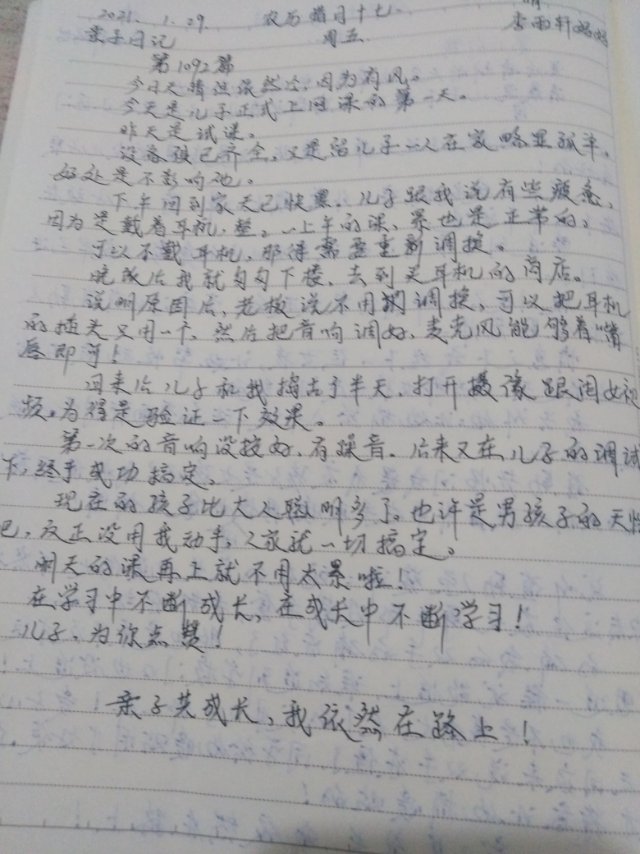 2021. 1. 29 农历腊月十七.
亲子日记 周五 李雨轩妈妈
第1092篇
今日天情况依然冷,因为有风。
今天是儿子正式上网课的第一天。
昨天是试课。
设备虽已齐全,又是留儿子一人在家略显孤单,
好处是不影响他。
下午回到家天已快黑,儿子跟我说有些疲惫,
因为是戴着耳机,整。一上午的课,累也是正常的;
可以不戴耳机,那得需要重新调换。
晚饭后我就匆匆下楼,去到买耳机的商店。
说明原因后,老板说不用调换,可以把耳机
的插头又用一下,然后把音响调好,麦克风能够着嘴
唇即可!
回来后儿子和我捣古了半天,打开摄像跟闺女视
频,为得是验证一下效果。
第一次的音响没接好,有躁音。后来又在儿子的调试
下,终于成功搞定。
现在的孩子比大人聪明多了。也许是男孩子的天性
吧,反正没用我动手,人家就一切搞定。
明天的课再上就不用太累啦!
在学习中不断成长,在成长中不断学习!
儿子,为你点赞!
亲子共成长,我依然在路上!